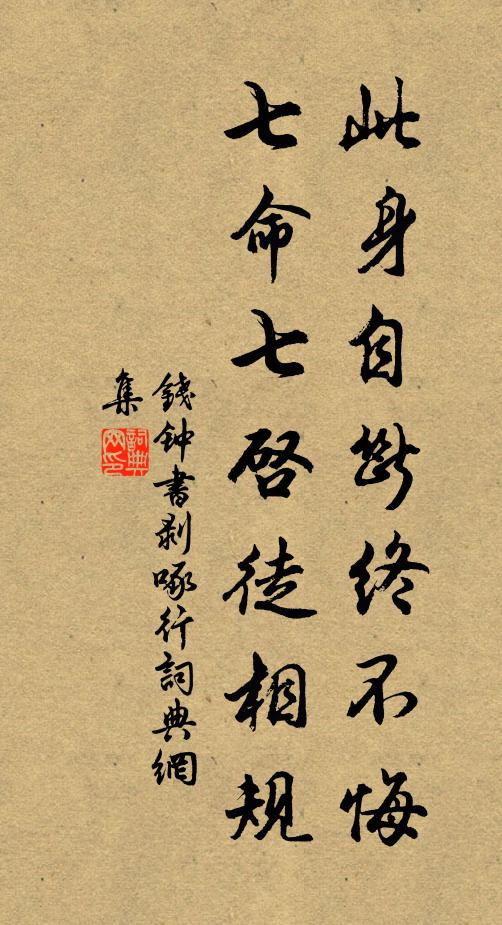 此身自断终不悔
七命七启徒相规
錢钟書剥啄行詞典網
集
詞典網印